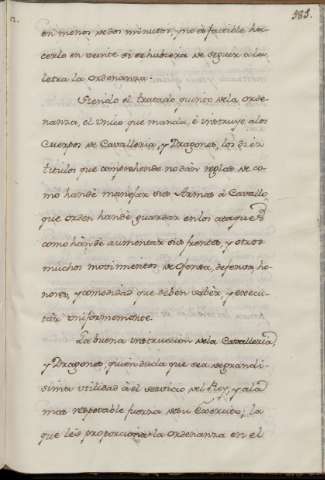 383.
en menos de dos minutos, y no es factible hac-
cerlo en veinte si se hubiera de seguir a la
letra la ordenanza.
Siendo el tratado quinto de la orde-
nanza, el unico que manda, é instruye a los
Cuerpos de Cavalleria, y Dragones, los
titulos que comprehende no dàn reglas de co-
mo han de manejar sus Armas à Cavallo
que orden han de guardar en los ataques
como han de aumentar sus frentes, y otros
muchos movimientos, de ofensa, defensa, ho-
nores, y comodidad que deben saber, y execu-
tar uniformemente.
La buena instruccion de la Cavalleria,
y Dragones, quien duda que sea de grandi-
sima utilidad à el servicio del Rey, y a la
mas respetable fuerza de su Exercito; la
que les proporciona la ordenanza en el